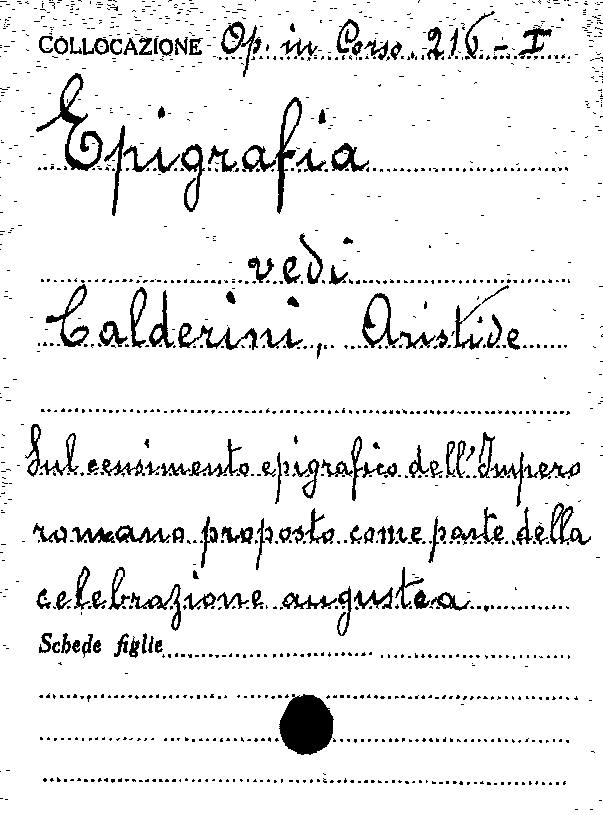 COLLOCAZIONE Op. in Corso. 216 - I
Epigrafia
vedi
Calderini, Aristide
Sul censimento epigrafico dell'Impero
romano proposto come parte della
celebrazione augustea.
Schede figlie